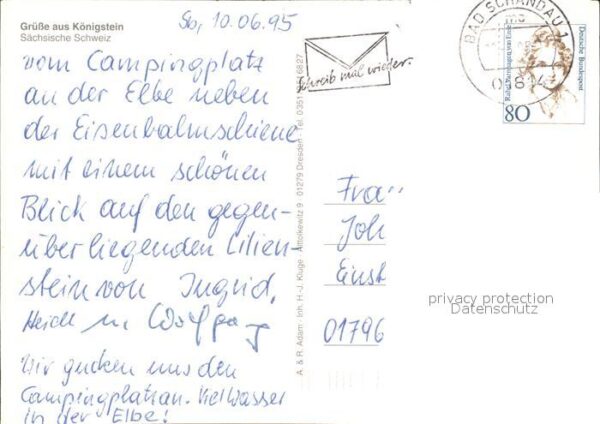 Grüße aus Königstein
Sächsische Schweiz
So, 10.06.95
vom Campingplatz
an der Elbe neben
der Eisenbahnschiene
mit einem schönen
Blick auf den gegen-
überliegenden Lilien-
stein von Ingrid,
Heidi u. Wolfgang
Wir gucken uns den
Campingplatz an. Viel Wasser
in der Elbe!
A. & R. Adam · Inh. H.-J. Kluge Alttolkewitz 9 01279 Dresden · Tel. 0 351
Schreib mal wieder.
BAD SCHANDAU 1
Deutsche Bundespost
80
Frau
Joh
Einst
01796
privacy protection
Datenschutz